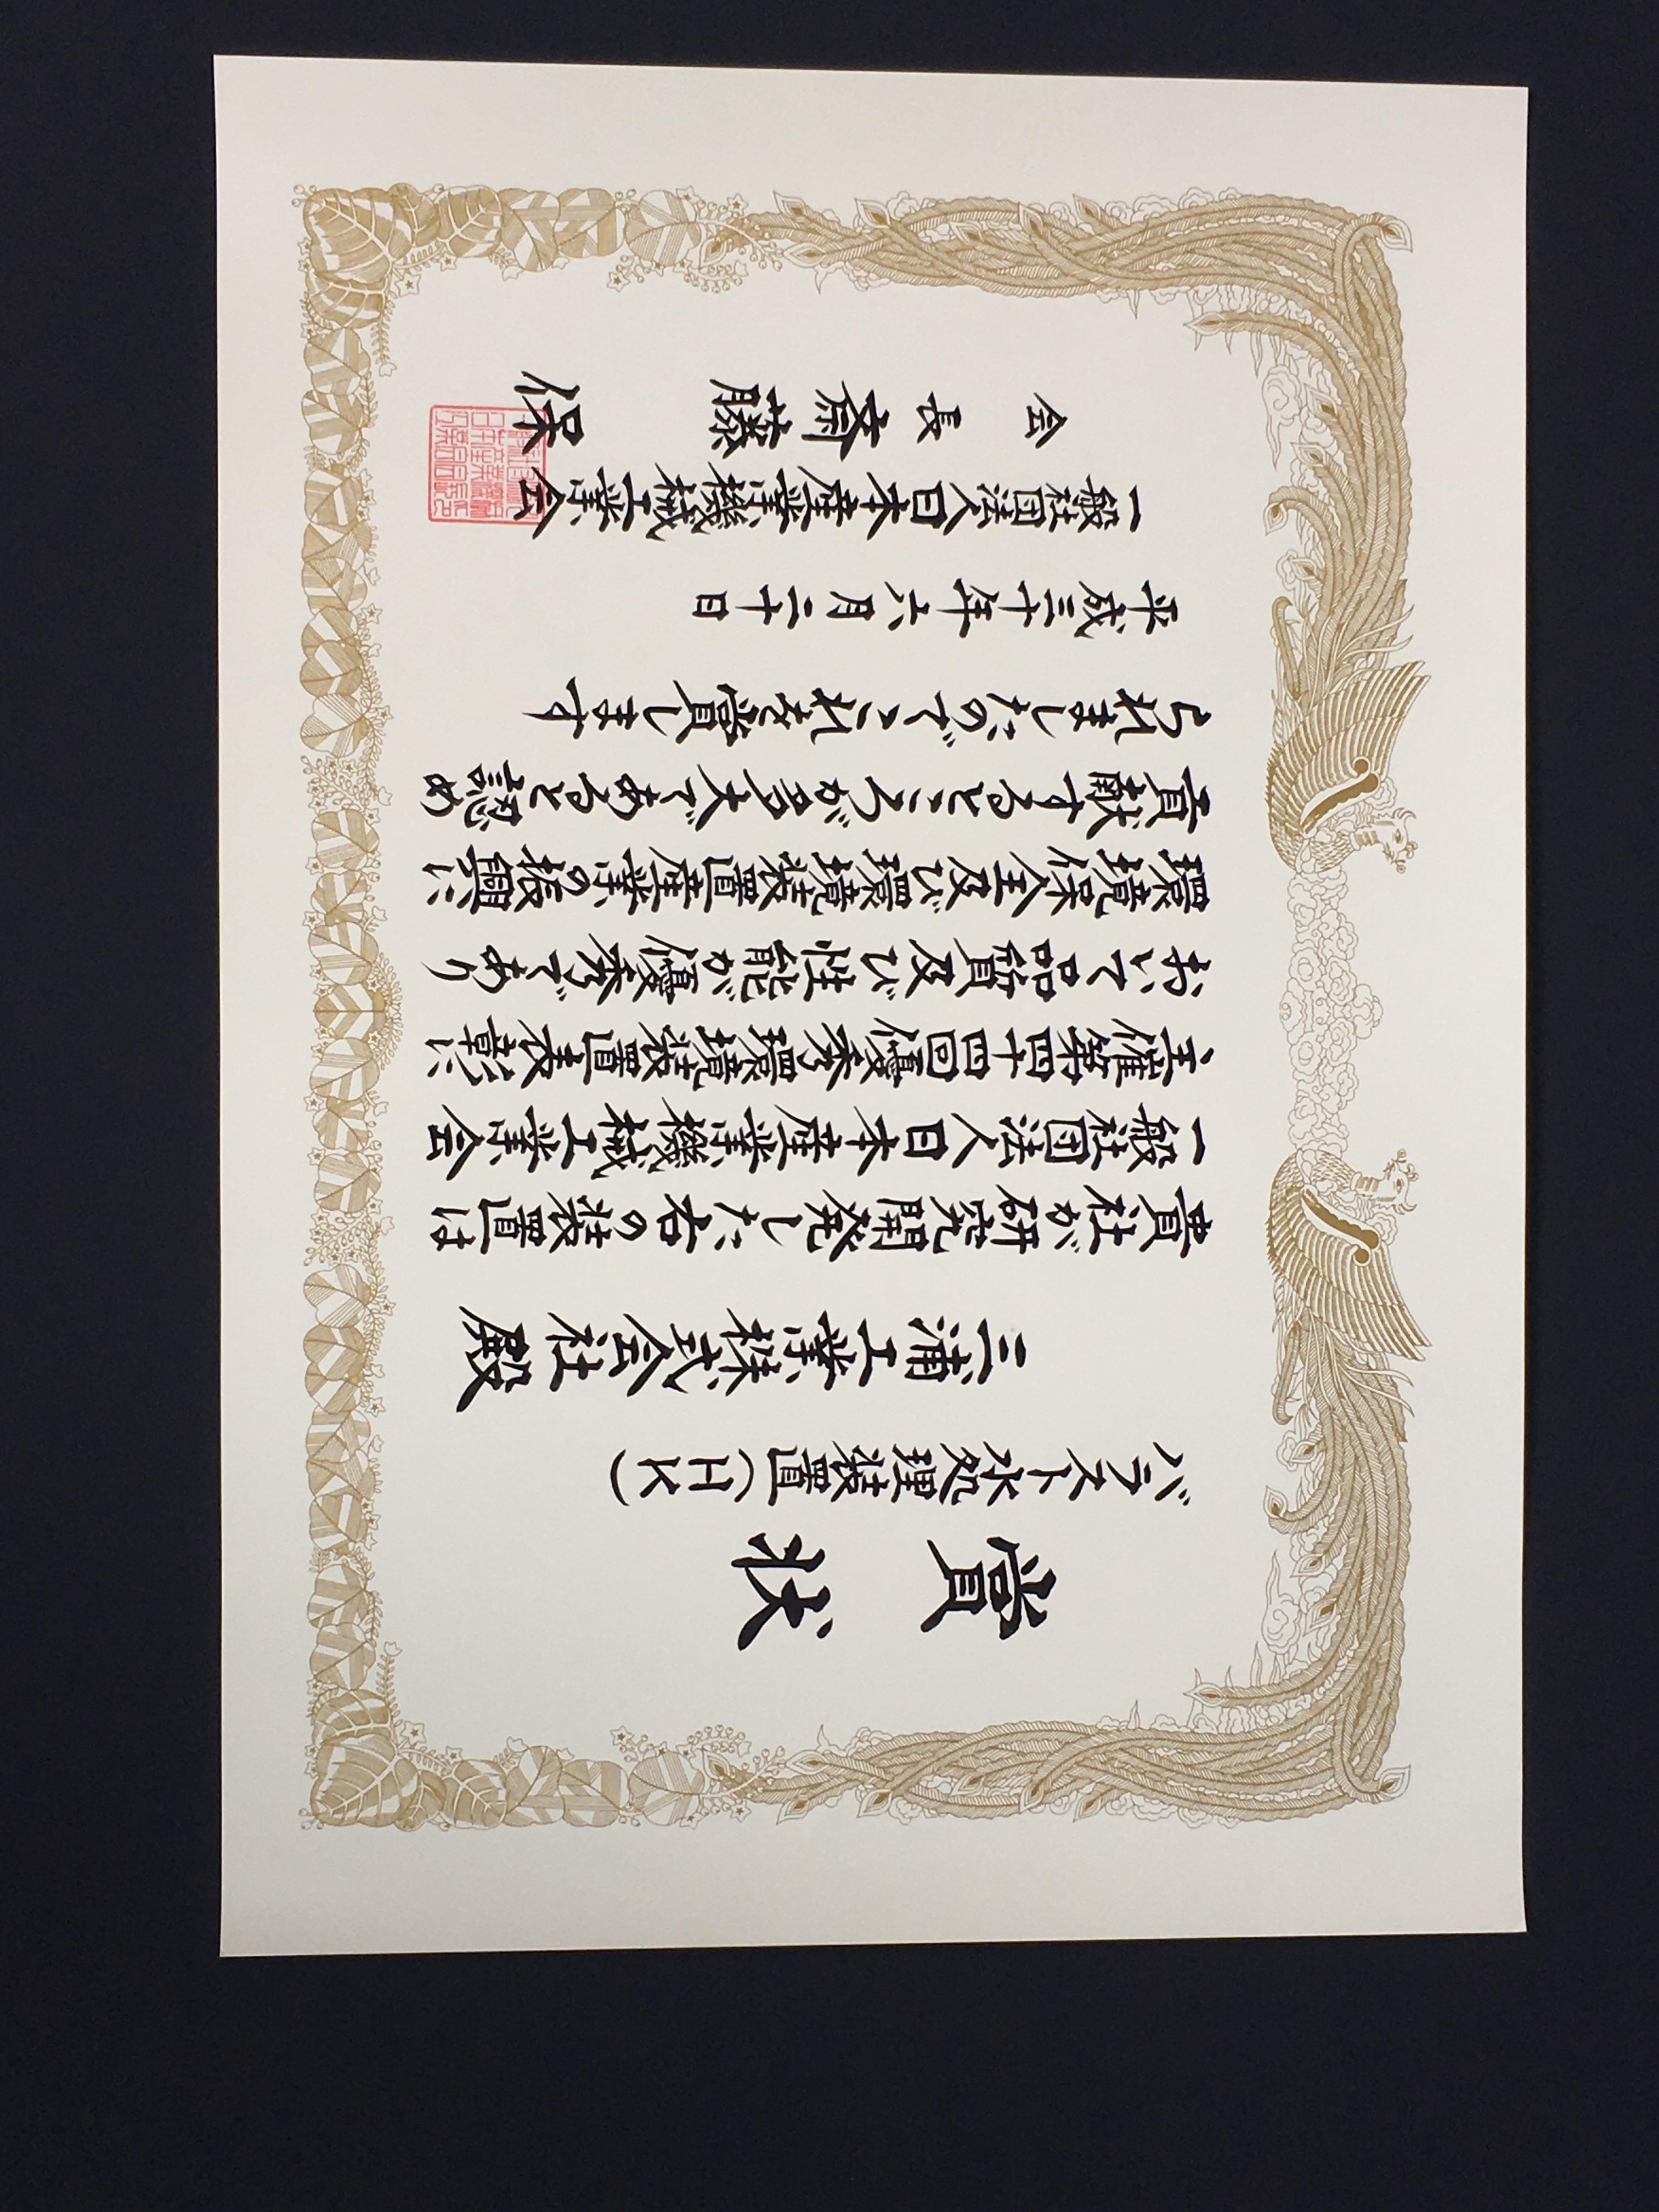 賞状
バラスト水処理装置(HK)
三浦工業株式会社殿
貴社が研究開発した右の装置は
一般社団法人日本産業機械工業会
主催第四十四回優秀環境装置表彰に
おいて品質及び性能が優秀であり
環境保全及び環境装置産業の振興に
貢献するところが多大であると認め
られましたのでこれを賞します
平成三十年六月二十日
一般社団法人日本産業機械工業会
会長斎藤保